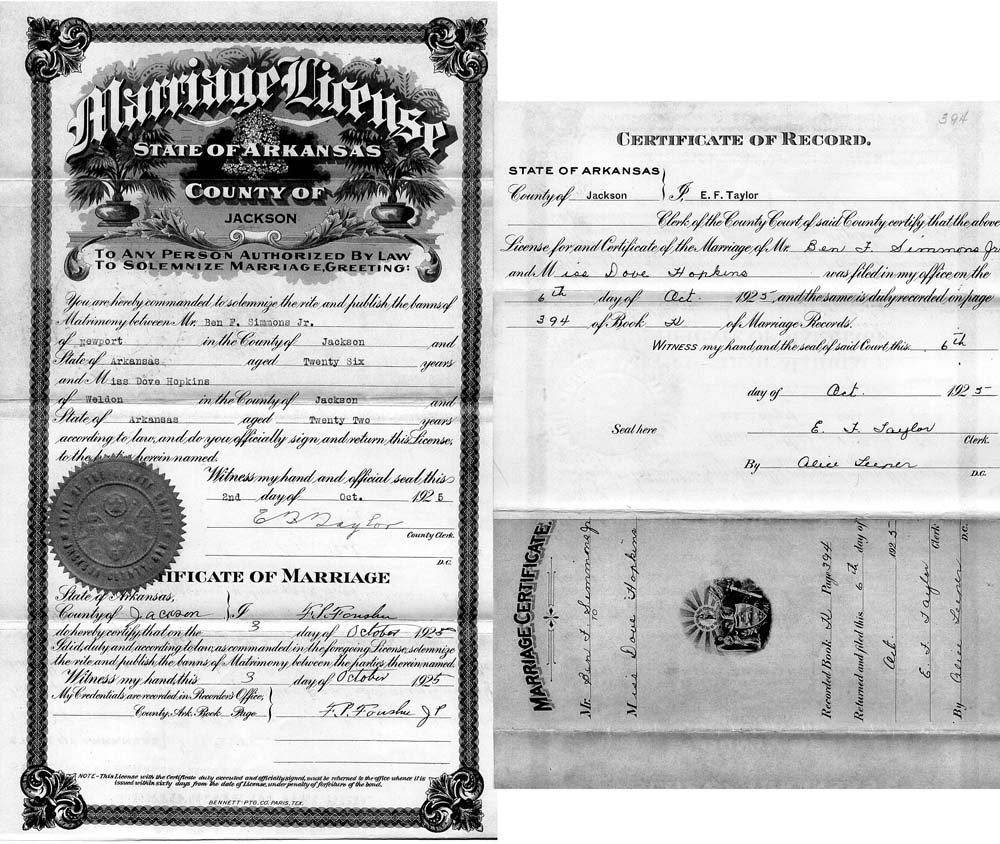 Marriage License
STATE OF ARKANSAS
COUNTY OF
JACKSON
TO ANY PERSON AUTHORIZED BY LAW
TO SOLEMNIZE MARRIAGE, GREETING:
You are hereby commanded to solemnize the rite and publish the banns of
Matrimony between Mr. Ben F. Simmons Jr.
of Newport in the County of Jackson and
State of Arkansas aged Twenty Six years
and Miss Dove Hopkins
of Weldon in the County of Jackson and
State of Arkansas aged Twenty Two years
according to law, and do you officially sign and return this License,
to the parties herein named.
Witness my hand and official seal this
2nd day of Oct. 1925
E F Taylor
County Clerk.
D.C.
TIFICATE OF MARRIAGE
State of Arkansas,
County of Jackson } I F. P. Foushee
do hereby certify that on the 3 day of October 1925
I did, duly and according to law, as commanded in the foregoing License, solemnize
the rite and publish the banns of Matrimony between the parties therein named.
Witness my hand this 3 day of October 1925
My Credentials are recorded in Recorder's Office,
County, Ark. Book Page } F. P. Foushee J P
NOTE-This License with the Certificate duly executed and officially signed, must be returned to the office whence it is
issued within sixty days from the date of License, under penalty of forfeiture of the bond.
BENNETT PTG. CO. PARIS, TEX.
394
CERTIFICATE OF RECORD.
STATE OF ARKANSAS
County of Jackson } I, E. F. Taylor
Clerk of the County Court of said County certify that the above
License for and Certificate of the Marriage of Mr. Ben F. Simmons Jr
and Miss Dove Hopkins was filed in my office on the
6th day of Oct. 1925, and the same is duly recorded on page
394 of Book H of Marriage Records.
WITNESS my hand and the seal of said Court this 6th
day of Oct. 1925
Seal here
E. F. Taylor
Clerk.
By Alice Leeper
D.C.
MARRIAGE CERTIFICATE.
Mr. Ben F Simmons Jr
TO
Miss Dove Hopkins
Recorded Book H Page 394
Returned and filed this 6th day of
Oct 1925
E. F. Taylor Clerk
By Alice Leeper D.C.